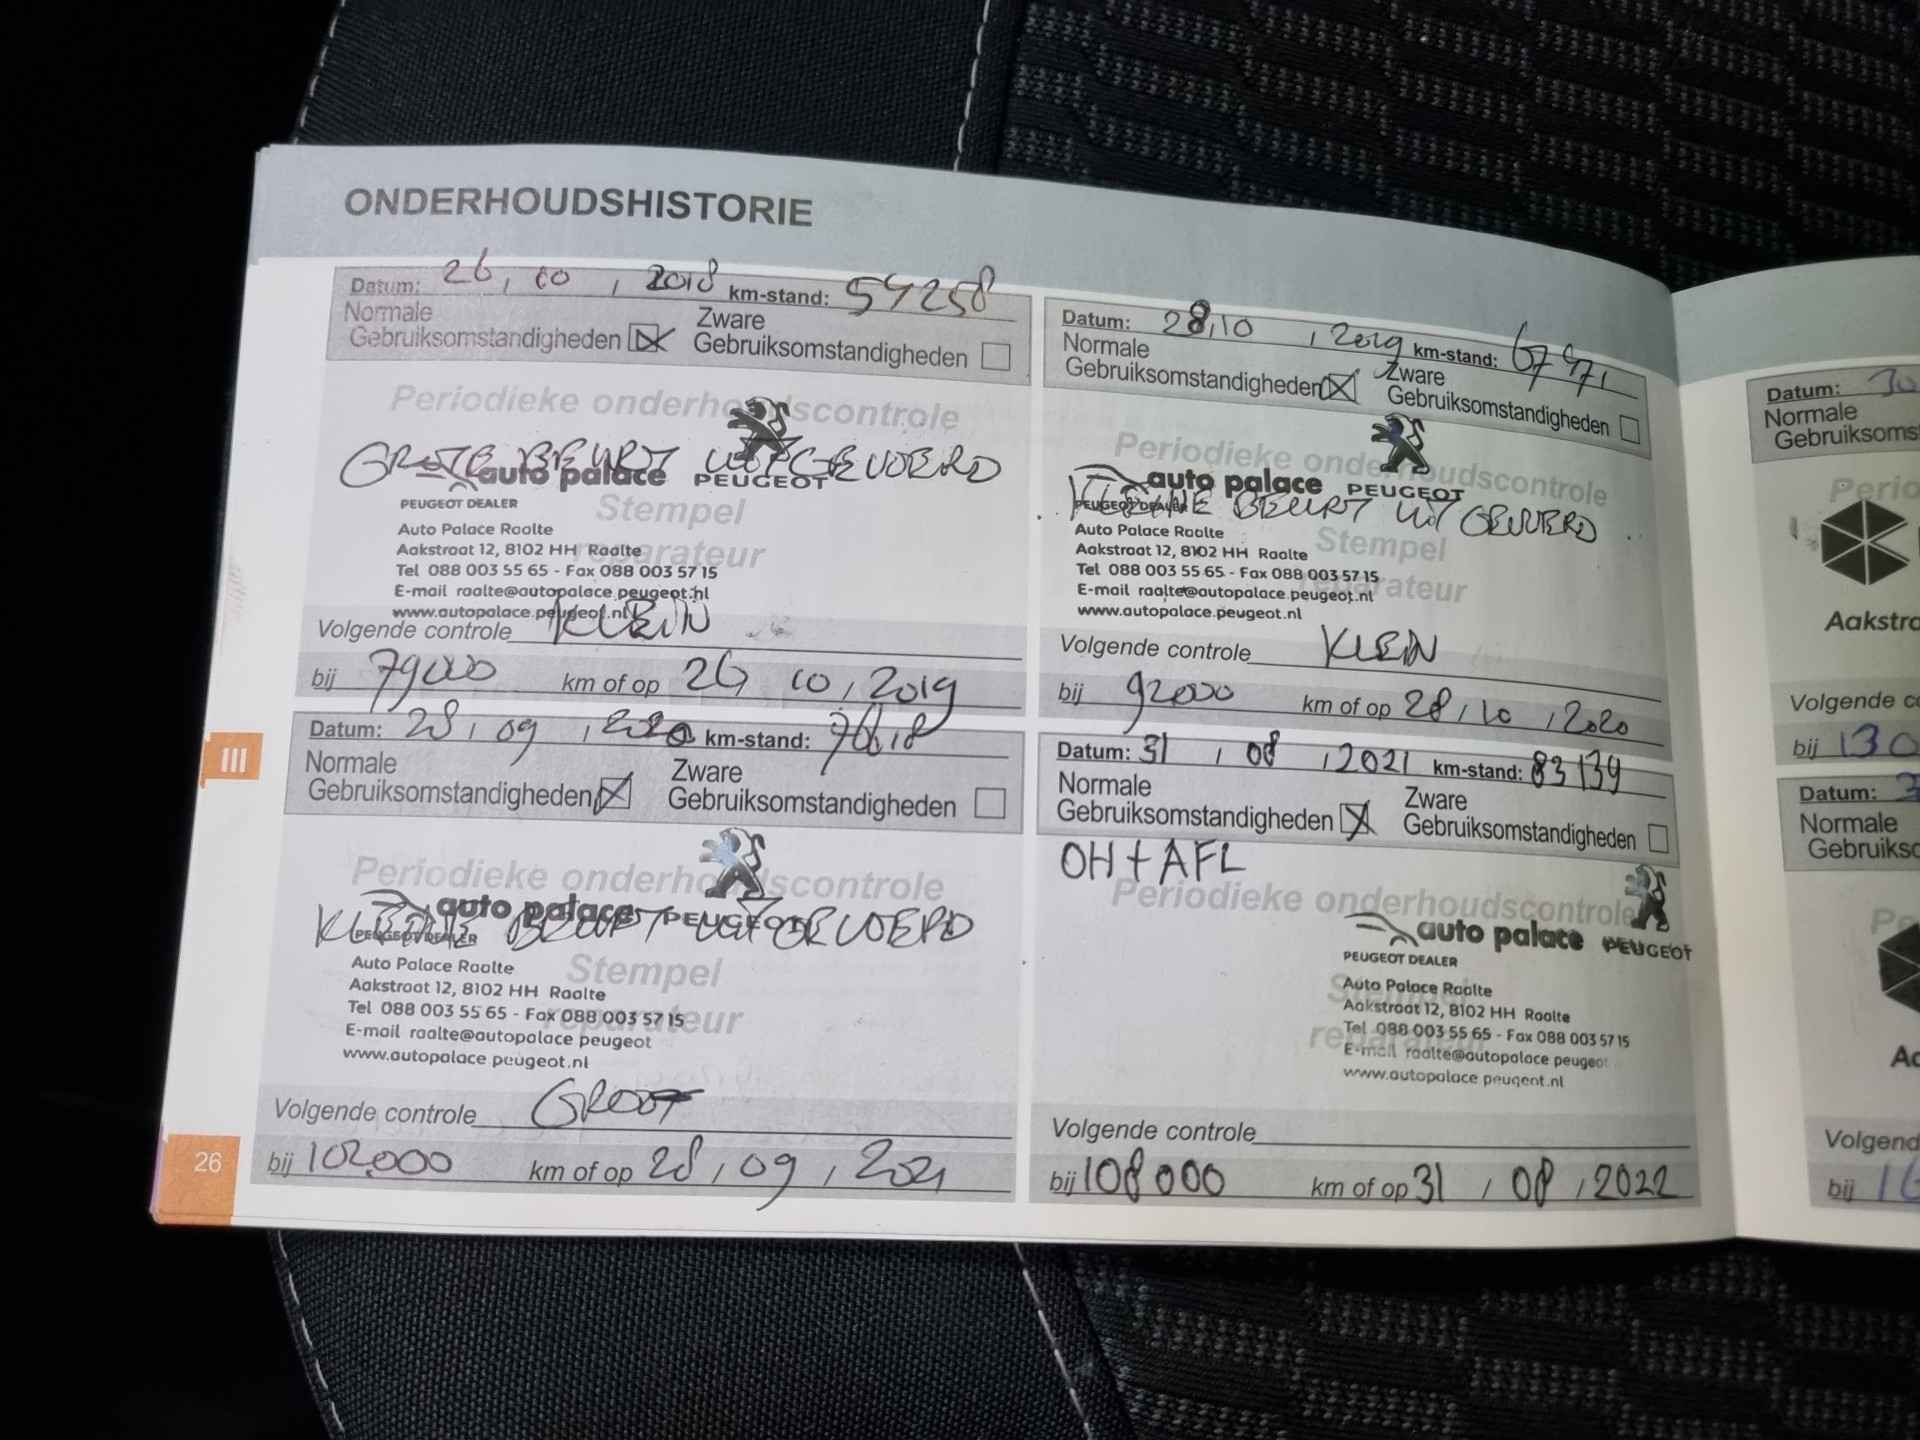 ONDERHOUDSHISTORIE
Datum: 26, 10, 2018 km-stand: 54258
Normale
Gebruiksomstandigheden
Zware
Gebruiksomstandigheden
Periodieke onderhoudscontrole
GROTE BEURT UITGEVOERD
auto palace PEUGEOT
PEUGEOT DEALER
Stempel
reparateur
Auto Palace Raalte
Aakstraat 12, 8102 HH Raalte
Tel 088 003 55 65 - Fax 088 003 57 15
E-mail raalte@autopalace.peugeot.nl
www.autopalace.peugeot.nl
Volgende controle KLEIN
bij 79000 km of op 26 10, 2019
Datum: 28,10, 2019 km-stand:
Normale
Gebruiksomstandigheden
Zware
Gebruiksomstandigheden
Periodieke onderhoudscontrole
auto palace PEUGEOT
PEUGEOT DEALER
KLEINE BEURT UITGEVOERD
Stempel
reparateur
Auto Palace Raalte
Aakstraat 12, 8102 HH Raalte
Tel 088 003 55 65 - Fax 088 003 57 15
E-mail raalte@autopalace.peugeot.nl
www.autopalace.peugeot.nl
Volgende controle KLEIN
bij 92000 km of op 28, 10, 2020
Datum: 28, 09, 2020 km-stand:
Normale
Gebruiksomstandigheden
Zware
Gebruiksomstandigheden
Periodieke onderhoudscontrole
auto palace PEUGEOT
KLEINE BEURT UITGEVOERD
PEUGEOT DEALER
Stempel
reparateur
Auto Palace Raalte
Aakstraat 12, 8102 HH Raalte
Tel 088 003 55 65 - Fax 088 003 57 15
E-mail raalte@autopalace peugeot
www.autopalace peugeot.nl
Volgende controle GROOT
bij 102.000 km of op 28, 09, 2021
Datum: 31, 08, 2021 km-stand: 83139
Normale
Gebruiksomstandigheden
Zware
Gebruiksomstandigheden
OH + AFL
Periodieke onderhoudscontrole
auto palace PEUGEOT
PEUGEOT DEALER
Stempel
reparateur
Auto Palace Raalte
Aakstraat 12, 8102 HH Raalte
Tel 088 003 55 65 - Fax 088 003 57 15
E-mail raalte@autopalace peugeot
www.autopalace peugeot.nl
Volgende controle
bij 108000 km of op 31, 08, 2022
III
26
Datum: 30
Normale
Gebruiksoms
Perio
Aakstra
Volgende co
bij 130
Datum: 3
Normale
Gebruikso
Pe
Aa
Volgend
bij 16